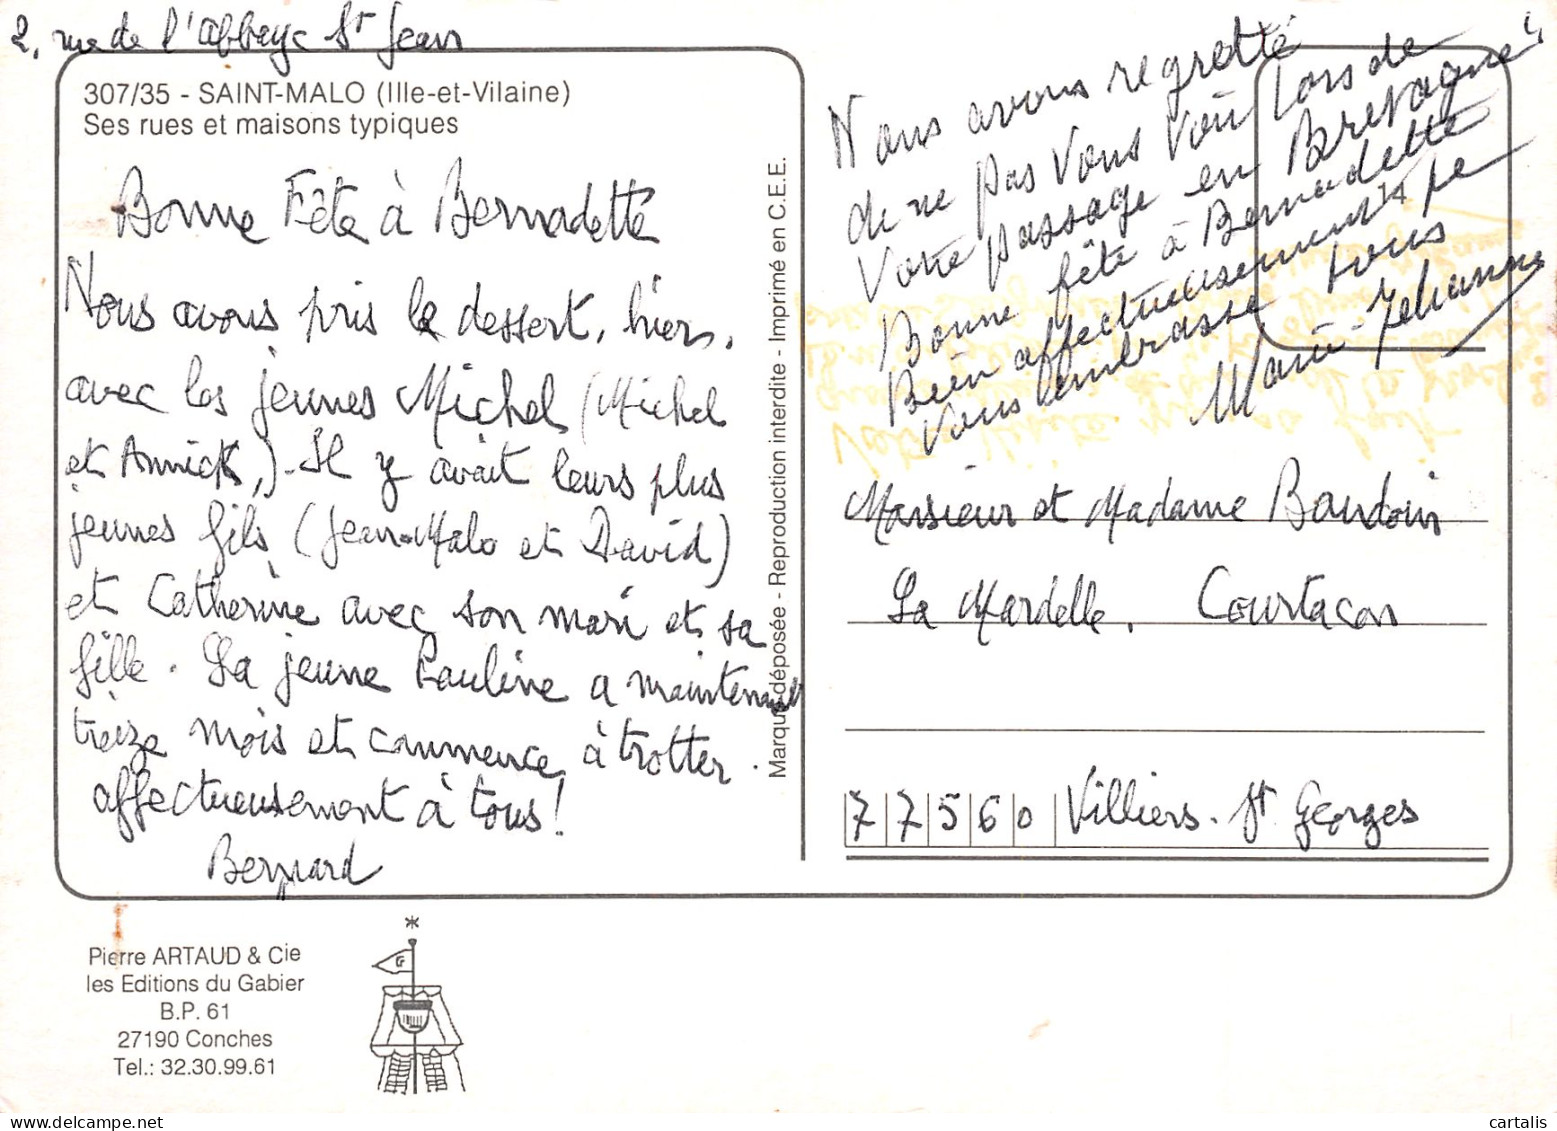 2, rue de l'abbaye St Jean
307/35 - SAINT-MALO (Ille-et-Vilaine)
Ses rues et maisons typiques
Bonne Fête à Bernadette
Nous avons pris le dessert, hier,
avec les jeunes Michel (Michel
et Annick,). Il y avait leurs plus
jeunes fils (Jean-Malo et David)
et Catherine avec son mari et sa
fille. La jeune Pauline a maintenant
treize mois et commence à trotter.
affectueusement à tous!
Bernard
Marque déposée - Reproduction interdite - Imprimé en C.E.E.
Nous avons regretté
de ne pas vous voir lors de
votre passage en Bretagne
Bonne fête à Bernadette
Bien affectueusement je
vous embrasse tous
Marie-Jehanne
14
Monsieur et Madame Baudoin
La Mardelle, Courtacon
77560 Villiers. St Georges
Pierre ARTAUD & Cie
les Editions du Gabier
B.P. 61
27190 Conches
Tel.: 32.30.99.61
cartalis